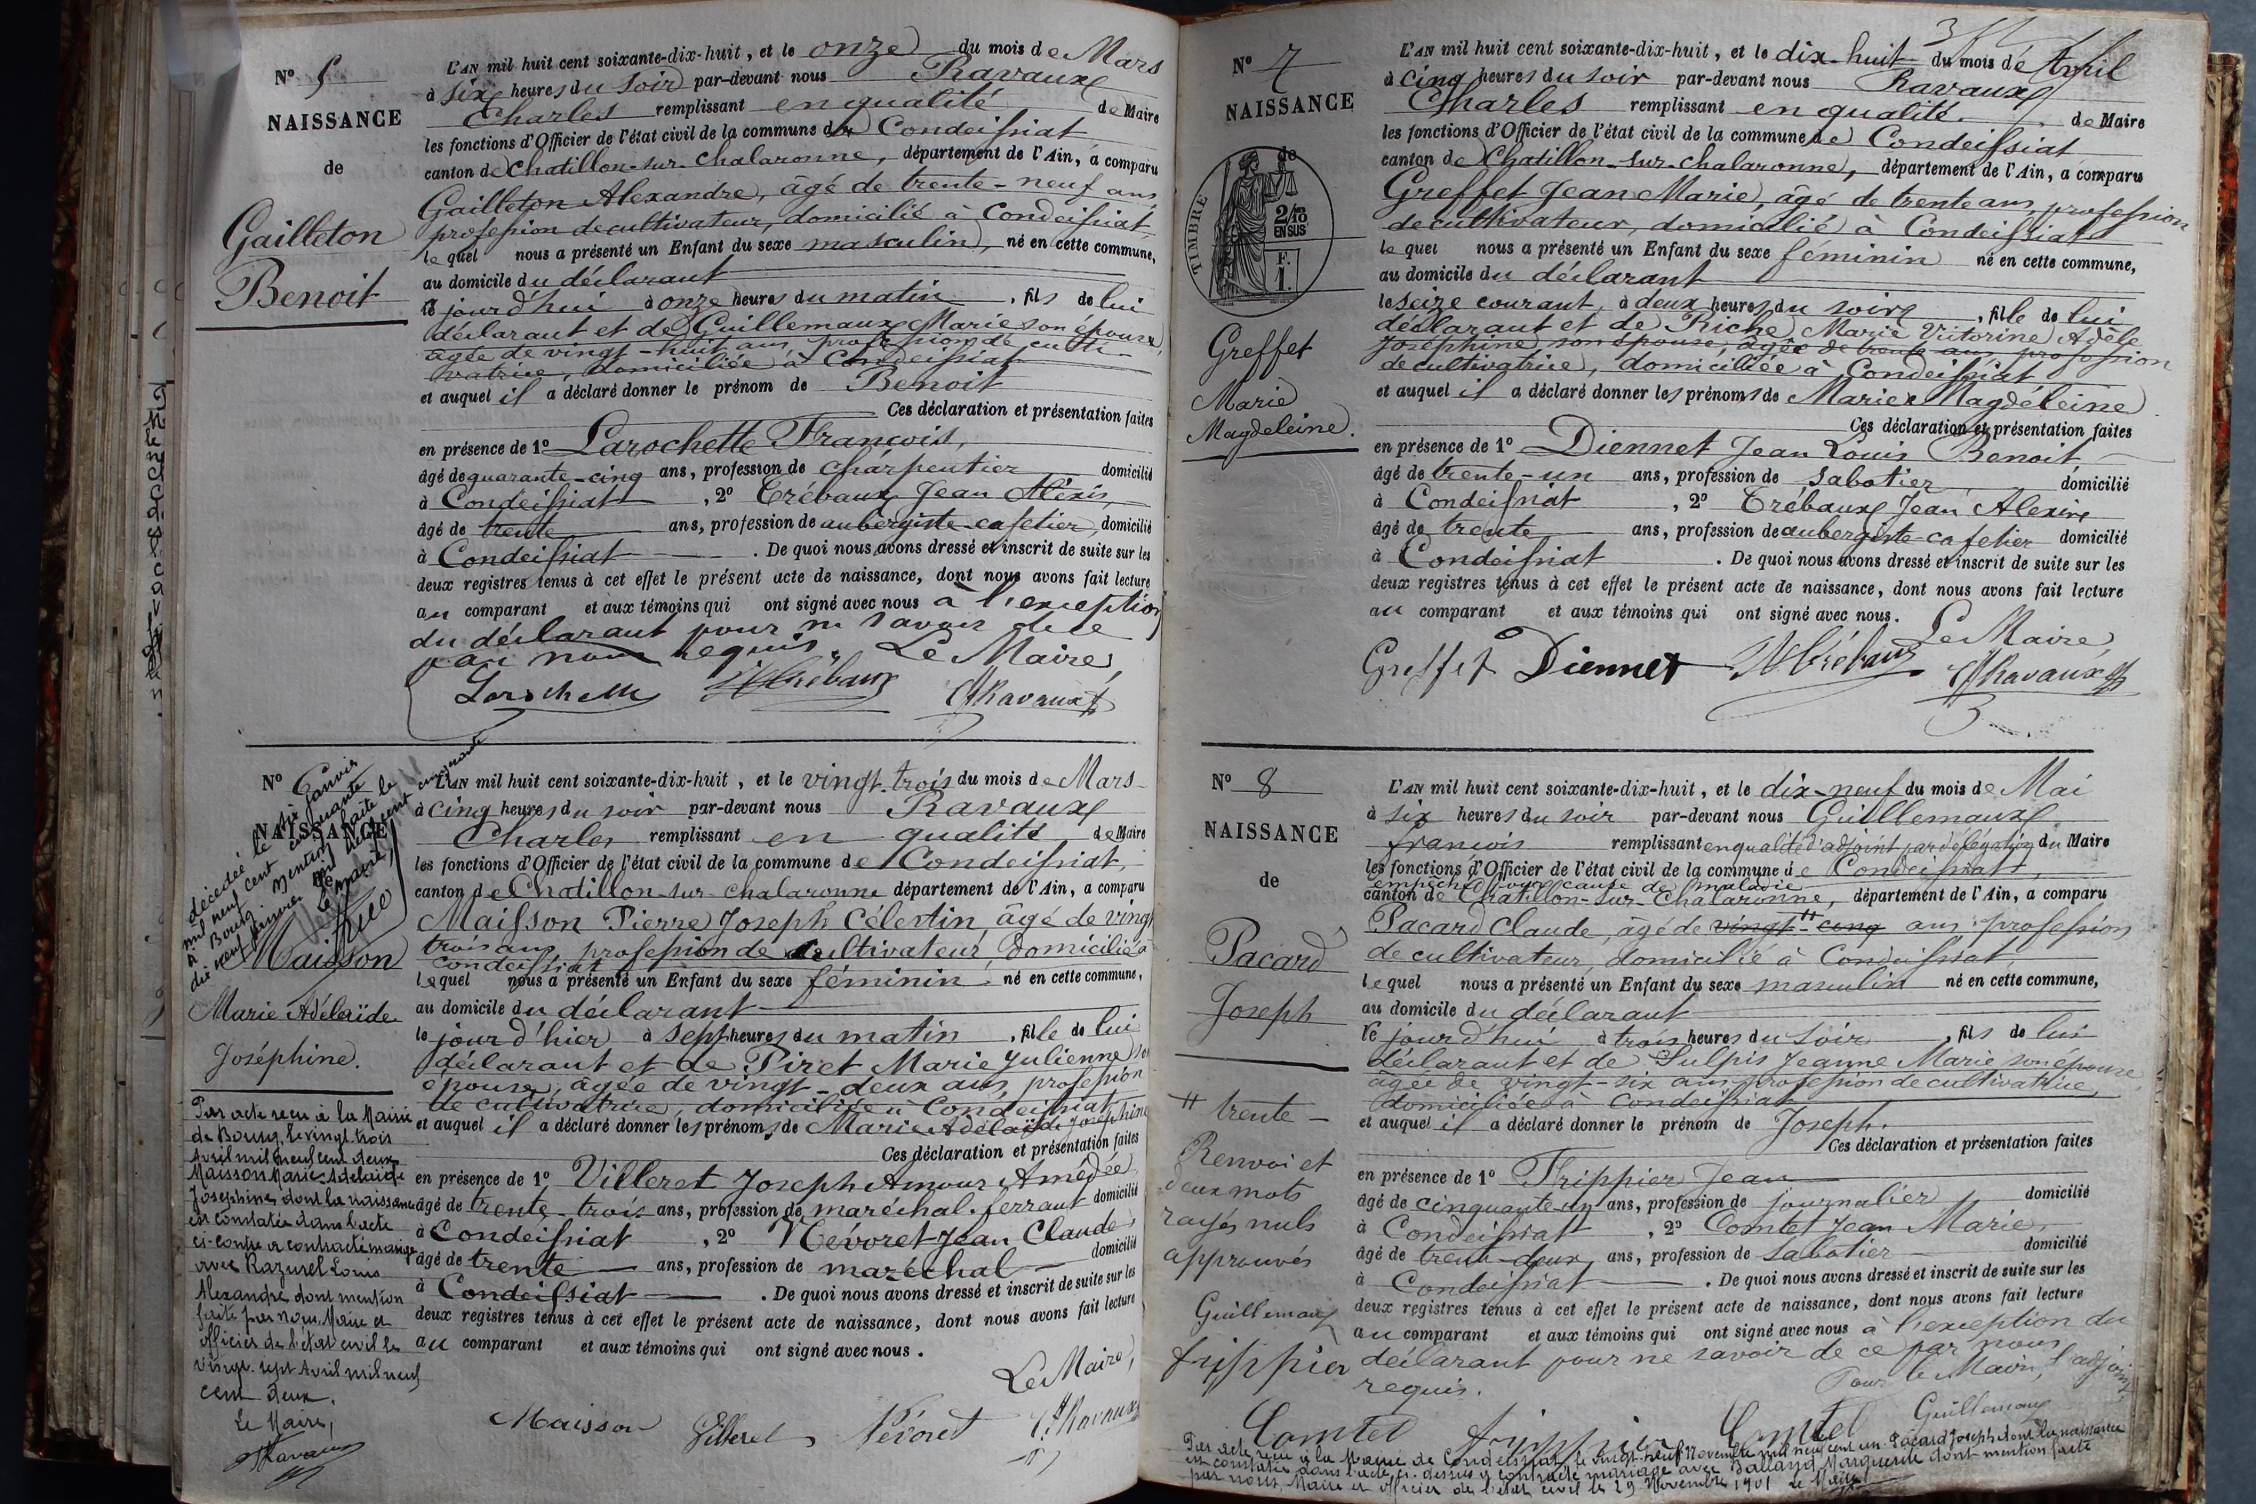 N° 5
NAISSANCE
de
Gailleton
Benoit
L'AN mil huit cent soixante-dix-huit, et le onze du mois de Mars
à six heures du soir par-devant nous Ravaux
Charles remplissant en qualité de Maire
les fonctions d'Officier de l'état civil de la commune de Condeissiat
canton de Chatillon-sur-Chalaronne, département de l'Ain, a comparu
Gailleton Alexandre, âgé de trente-neuf ans,
profession de cultivateur, domicilié à Condeissiat
lequel nous a présenté un Enfant du sexe masculin, né en cette commune,
au domicile du déclarant
ce jourd'hui à onze heures du matin, fils de lui
déclarant et de Guillemaux Marie son épouse,
âgée de vingt-huit ans, profession de culti-
vatrice, domiciliée à Condeissiat
et auquel il a déclaré donner le prénom de Benoit
Ces déclaration et présentation faites
en présence de 1° Larochette François,
âgé de quarante-cinq ans, profession de charpentier domicilié
à Condeissiat, 2° Trébaux Jean Alexis,
âgé de trente ans, profession de aubergiste-cafetier, domicilié
à Condeissiat. De quoi nous avons dressé et inscrit de suite sur les
deux registres tenus à cet effet le présent acte de naissance, dont nous avons fait lecture
au comparant et aux témoins qui ont signé avec nous à l'exception
du déclarant pour ne savoir de ce
par nous requis. Le Maire,
Larochette Trébaux Ravaux
N° 6
NAISSANCE
de
Maisson
Marie Adélaïde
Joséphine.
décédée le six janvier
mil neuf cent cinquante
à Bourg. Mention faite le
dix neuf janvier mil neuf cent cinquante
L'AN mil huit cent soixante-dix-huit, et le vingt-trois du mois de Mars
à cinq heures du soir par-devant nous Ravaux
Charles remplissant en qualité de Maire
les fonctions d'Officier de l'état civil de la commune de Condeissiat,
canton de Chatillon-sur-Chalaronne département de l'Ain, a comparu
Maisson Pierre Joseph Célestin, âgé de vingt
trois ans, profession de cultivateur, domicilié à
Condeissiat
lequel nous a présenté un Enfant du sexe féminin, né en cette commune,
au domicile du déclarant
le jour d'hier à sept heures du matin, fille de lui
déclarant et de Piret Marie Julienne son
épouse, âgée de vingt-deux ans, profession
de cultivatrice, domiciliée à Condeissiat
et auquel il a déclaré donner les prénoms de Marie Adélaïde Joséphine
Ces déclaration et présentation faites
en présence de 1° Villeret Joseph Amour Amédée
âgé de trente-trois ans, profession de maréchal-ferrant domicilié
à Condeissiat, 2° Névoret Jean Claude,
âgé de trente ans, profession de maréchal domicilié
à Condeissiat. De quoi nous avons dressé et inscrit de suite sur les
deux registres tenus à cet effet le présent acte de naissance, dont nous avons fait lecture
au comparant et aux témoins qui ont signé avec nous.
Le Maire,
Maisson Villeret Névoret Ravaux
Par acte reçu à la Mairie
de Bourg, le vingt-trois
Avril mil neuf cent deux
Maisson Marie Adelaïde
Joséphine dont la naissance
est constatée dans l'acte
ci-contre a contracté mariage
avec Razurel Louis
Alexandre dont mention
faite par nous, Maire et
officier de l'état civil le
vingt-sept Avril mil neuf
cent deux.
Le Maire,
Ravaux
N° 7
NAISSANCE
de
TIMBRE
2/10
EN SUS
F.
1.
Greffet
Marie
Magdeleine.
L'AN mil huit cent soixante-dix-huit, et le dix-huit du mois de Avril
à cinq heures du soir par-devant nous Ravaux
Charles remplissant en qualité de Maire
les fonctions d'Officier de l'état civil de la commune de Condeissiat
canton de Chatillon-sur-Chalaronne, département de l'Ain, a comparu
Greffet Jean Marie, âgé de trente ans, profession
de cultivateur, domicilié à Condeissiat
lequel nous a présenté un Enfant du sexe féminin né en cette commune,
au domicile du déclarant
le seize courant, à deux heures du soir, fille de lui
déclarant et de Riche Marie Victorine Adèle
Joséphine son épouse, âgée de trente ans, profession
de cultivatrice, domiciliée à Condeissiat
et auquel il a déclaré donner les prénoms de Marie Magdéleine
Ces déclaration et présentation faites
en présence de 1° Diennet Jean Louis Benoit
âgé de trente-un ans, profession de sabotier domicilié
à Condeissiat, 2° Trébaux Jean Alexis
âgé de trente ans, profession de aubergiste-cafetier domicilié
à Condeissiat. De quoi nous avons dressé et inscrit de suite sur les
deux registres tenus à cet effet le présent acte de naissance, dont nous avons fait lecture
au comparant et aux témoins qui ont signé avec nous.
Le Maire
Greffet Diennet Trébaux Ravaux
N° 8
NAISSANCE
de
Pacard
Joseph
# trente
Renvoi et
deux mots
rayés nuls
approuvés
Guillemaux
frippier
L'AN mil huit cent soixante-dix-huit, et le dix-neuf du mois de Mai
à six heures du soir par-devant nous Guillemaux
François remplissant en qualité d'adjoint par délégation du Maire
les fonctions d'Officier de l'état civil de la commune de Condeissiat,
empêché pour cause de maladie
canton de Chatillon-sur-Chalaronne, département de l'Ain, a comparu
Pacard Claude, âgé de vingt-cinq # ans, profession
de cultivateur, domicilié à Condeissiat,
lequel nous a présenté un Enfant du sexe masculin né en cette commune,
au domicile du déclarant
ce jourd'hui à trois heures du soir, fils de lui
déclarant et de Sulpis Jeanne Marie son épouse,
âgée de vingt-six ans, profession de cultivatrice,
domiciliée à Condeissiat
et auquel il a déclaré donner le prénom de Joseph.
Ces déclaration et présentation faites
en présence de 1° Frippier Jean
âgé de cinquante-un ans, profession de journalier, domicilié
à Condeissiat, 2° Comtet Jean Marie,
âgé de trente-deux ans, profession de sabotier domicilié
à Condeissiat. De quoi nous avons dressé et inscrit de suite sur les
deux registres tenus à cet effet le présent acte de naissance, dont nous avons fait lecture
au comparant et aux témoins qui ont signé avec nous à l'exception du
déclarant pour ne savoir de ce par nous
requis. Pour le Maire, l'adjoint
Comtet frippier Comtet Guillemaux
Par acte reçu à la Mairie de Condeissiat, le vingt-neuf Novembre mil neuf cent un, Pacard Joseph dont la naissance
est constatée dans l'acte ci-dessus a contracté mariage avec Balland Marguerite dont mention faite
par nous, Maire et officier de l'état civil le 29 Novembre 1901 Le Maire